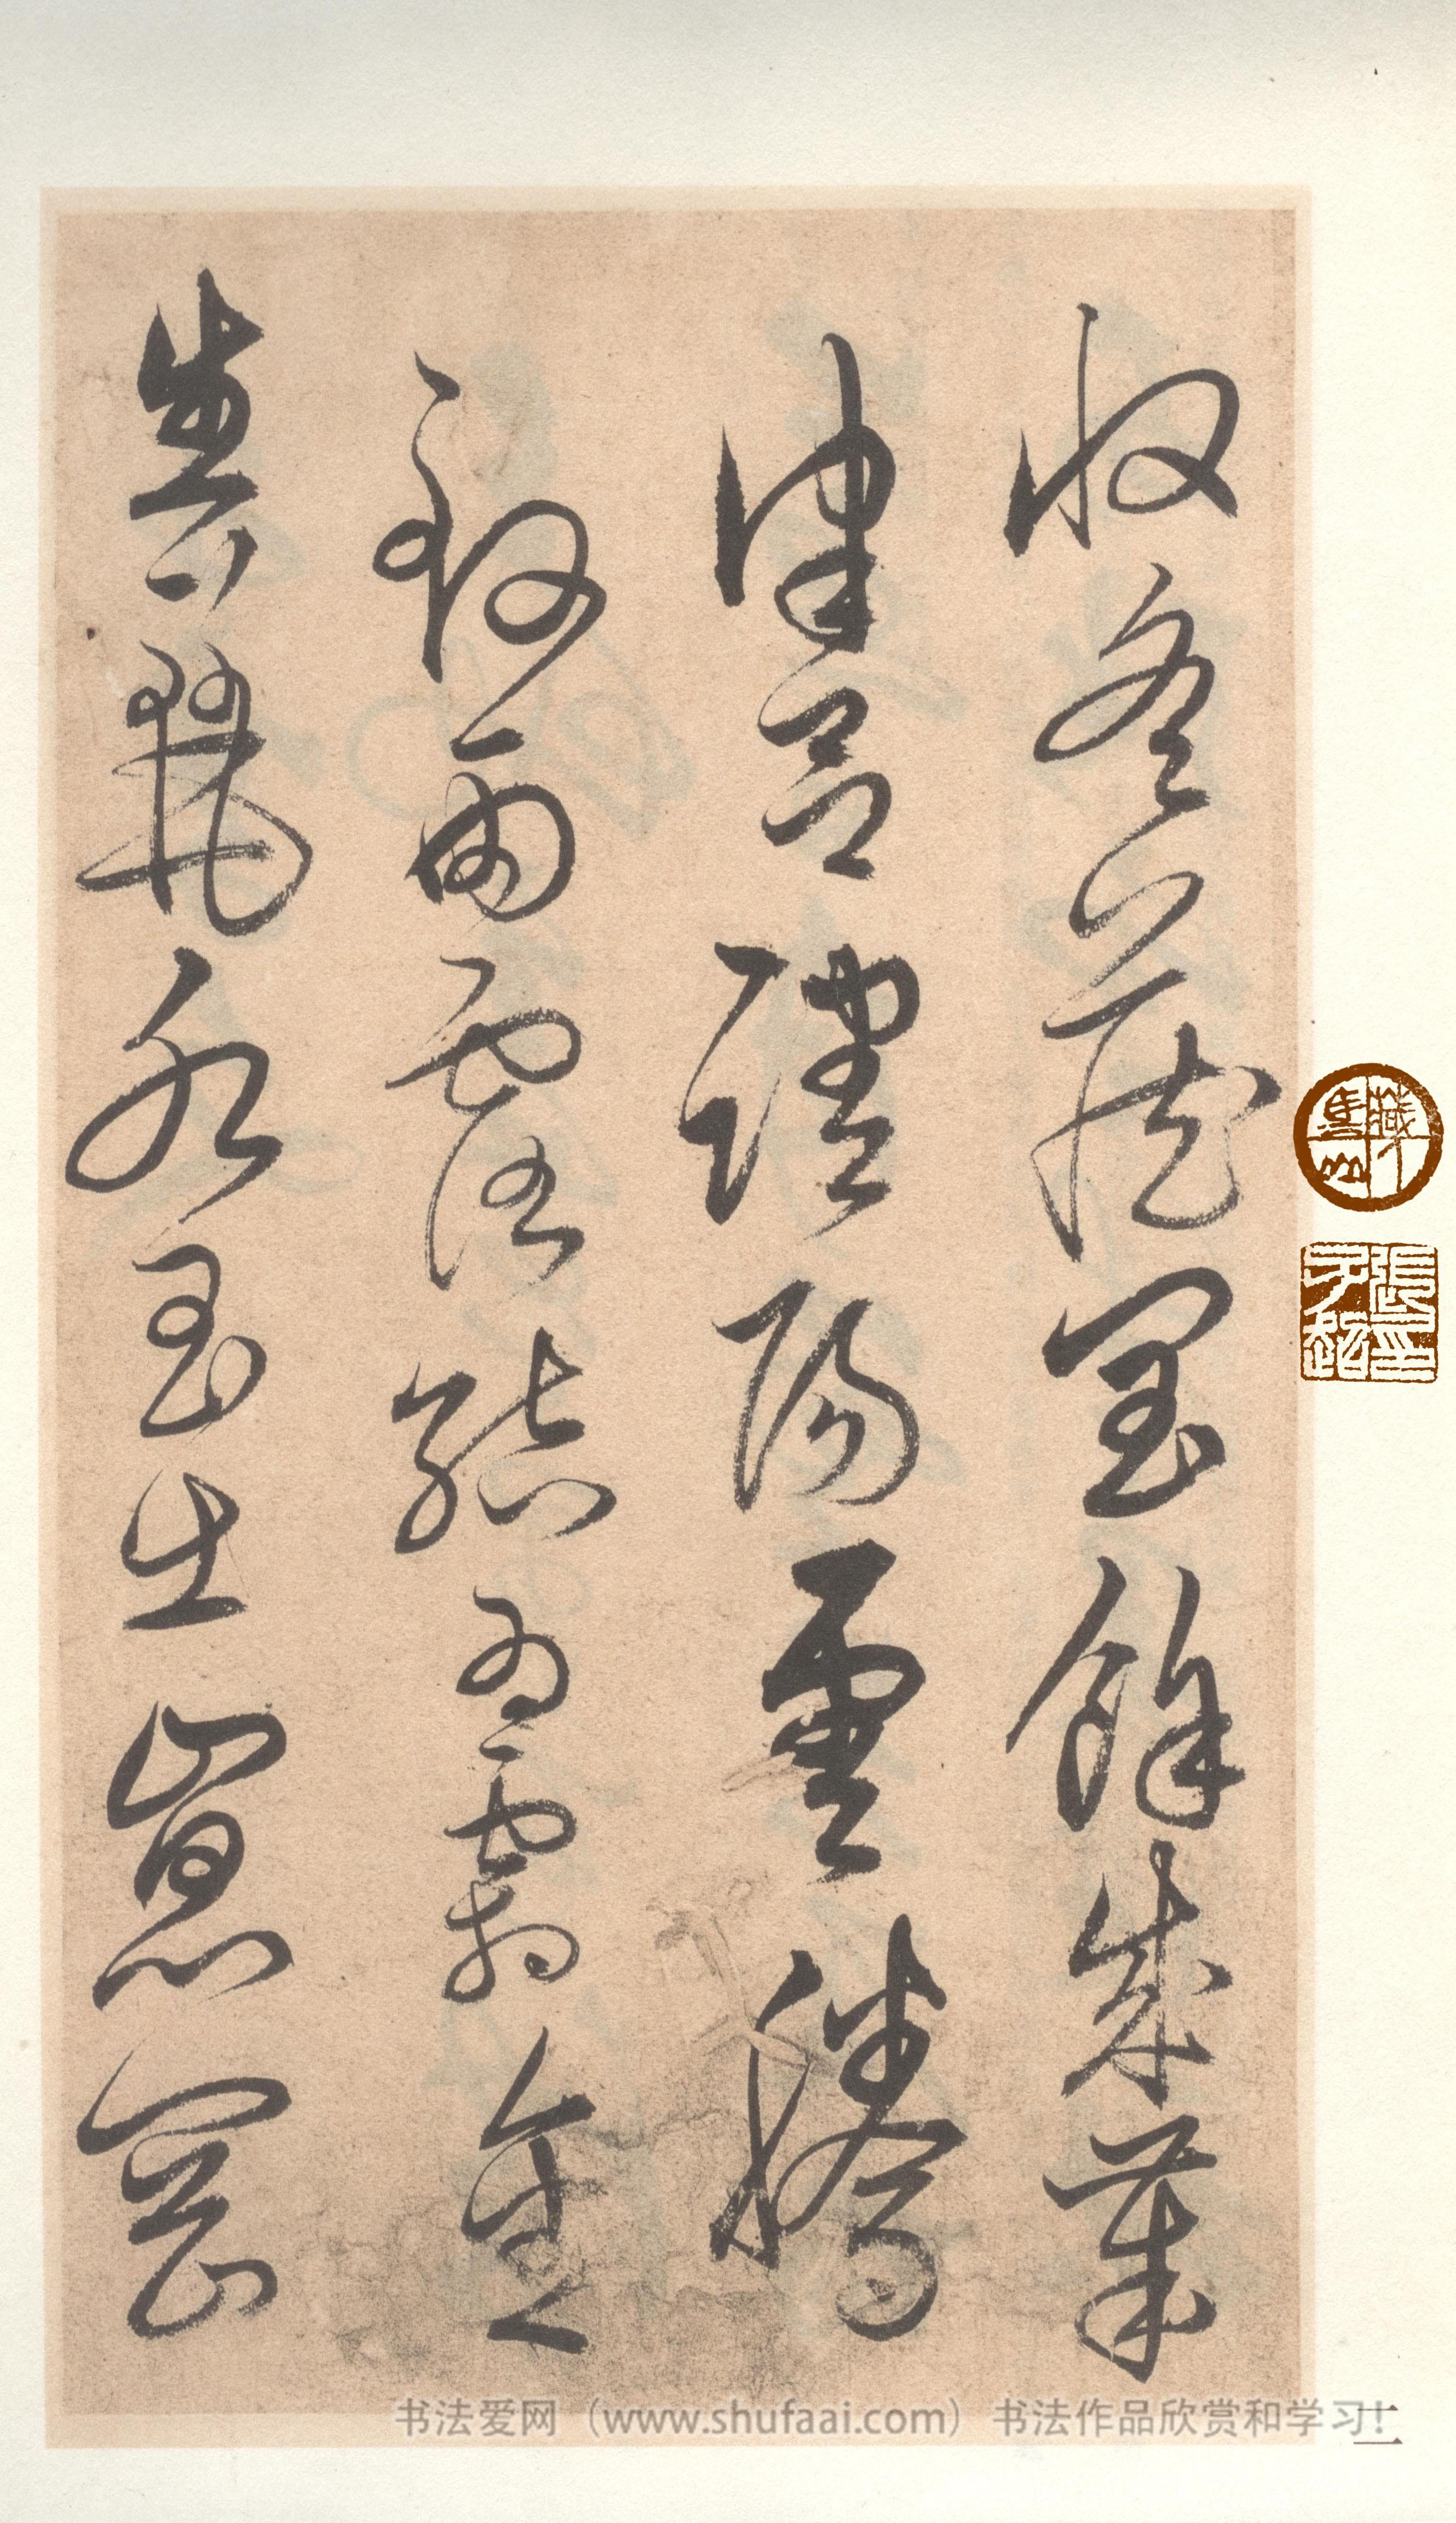 收冬藏閏餘成歲
律呂調陽雲騰
致雨露結為霜金
生麗水玉出崑崗
书法爱网（www.shufaai.com）书法作品欣赏和学习！
二